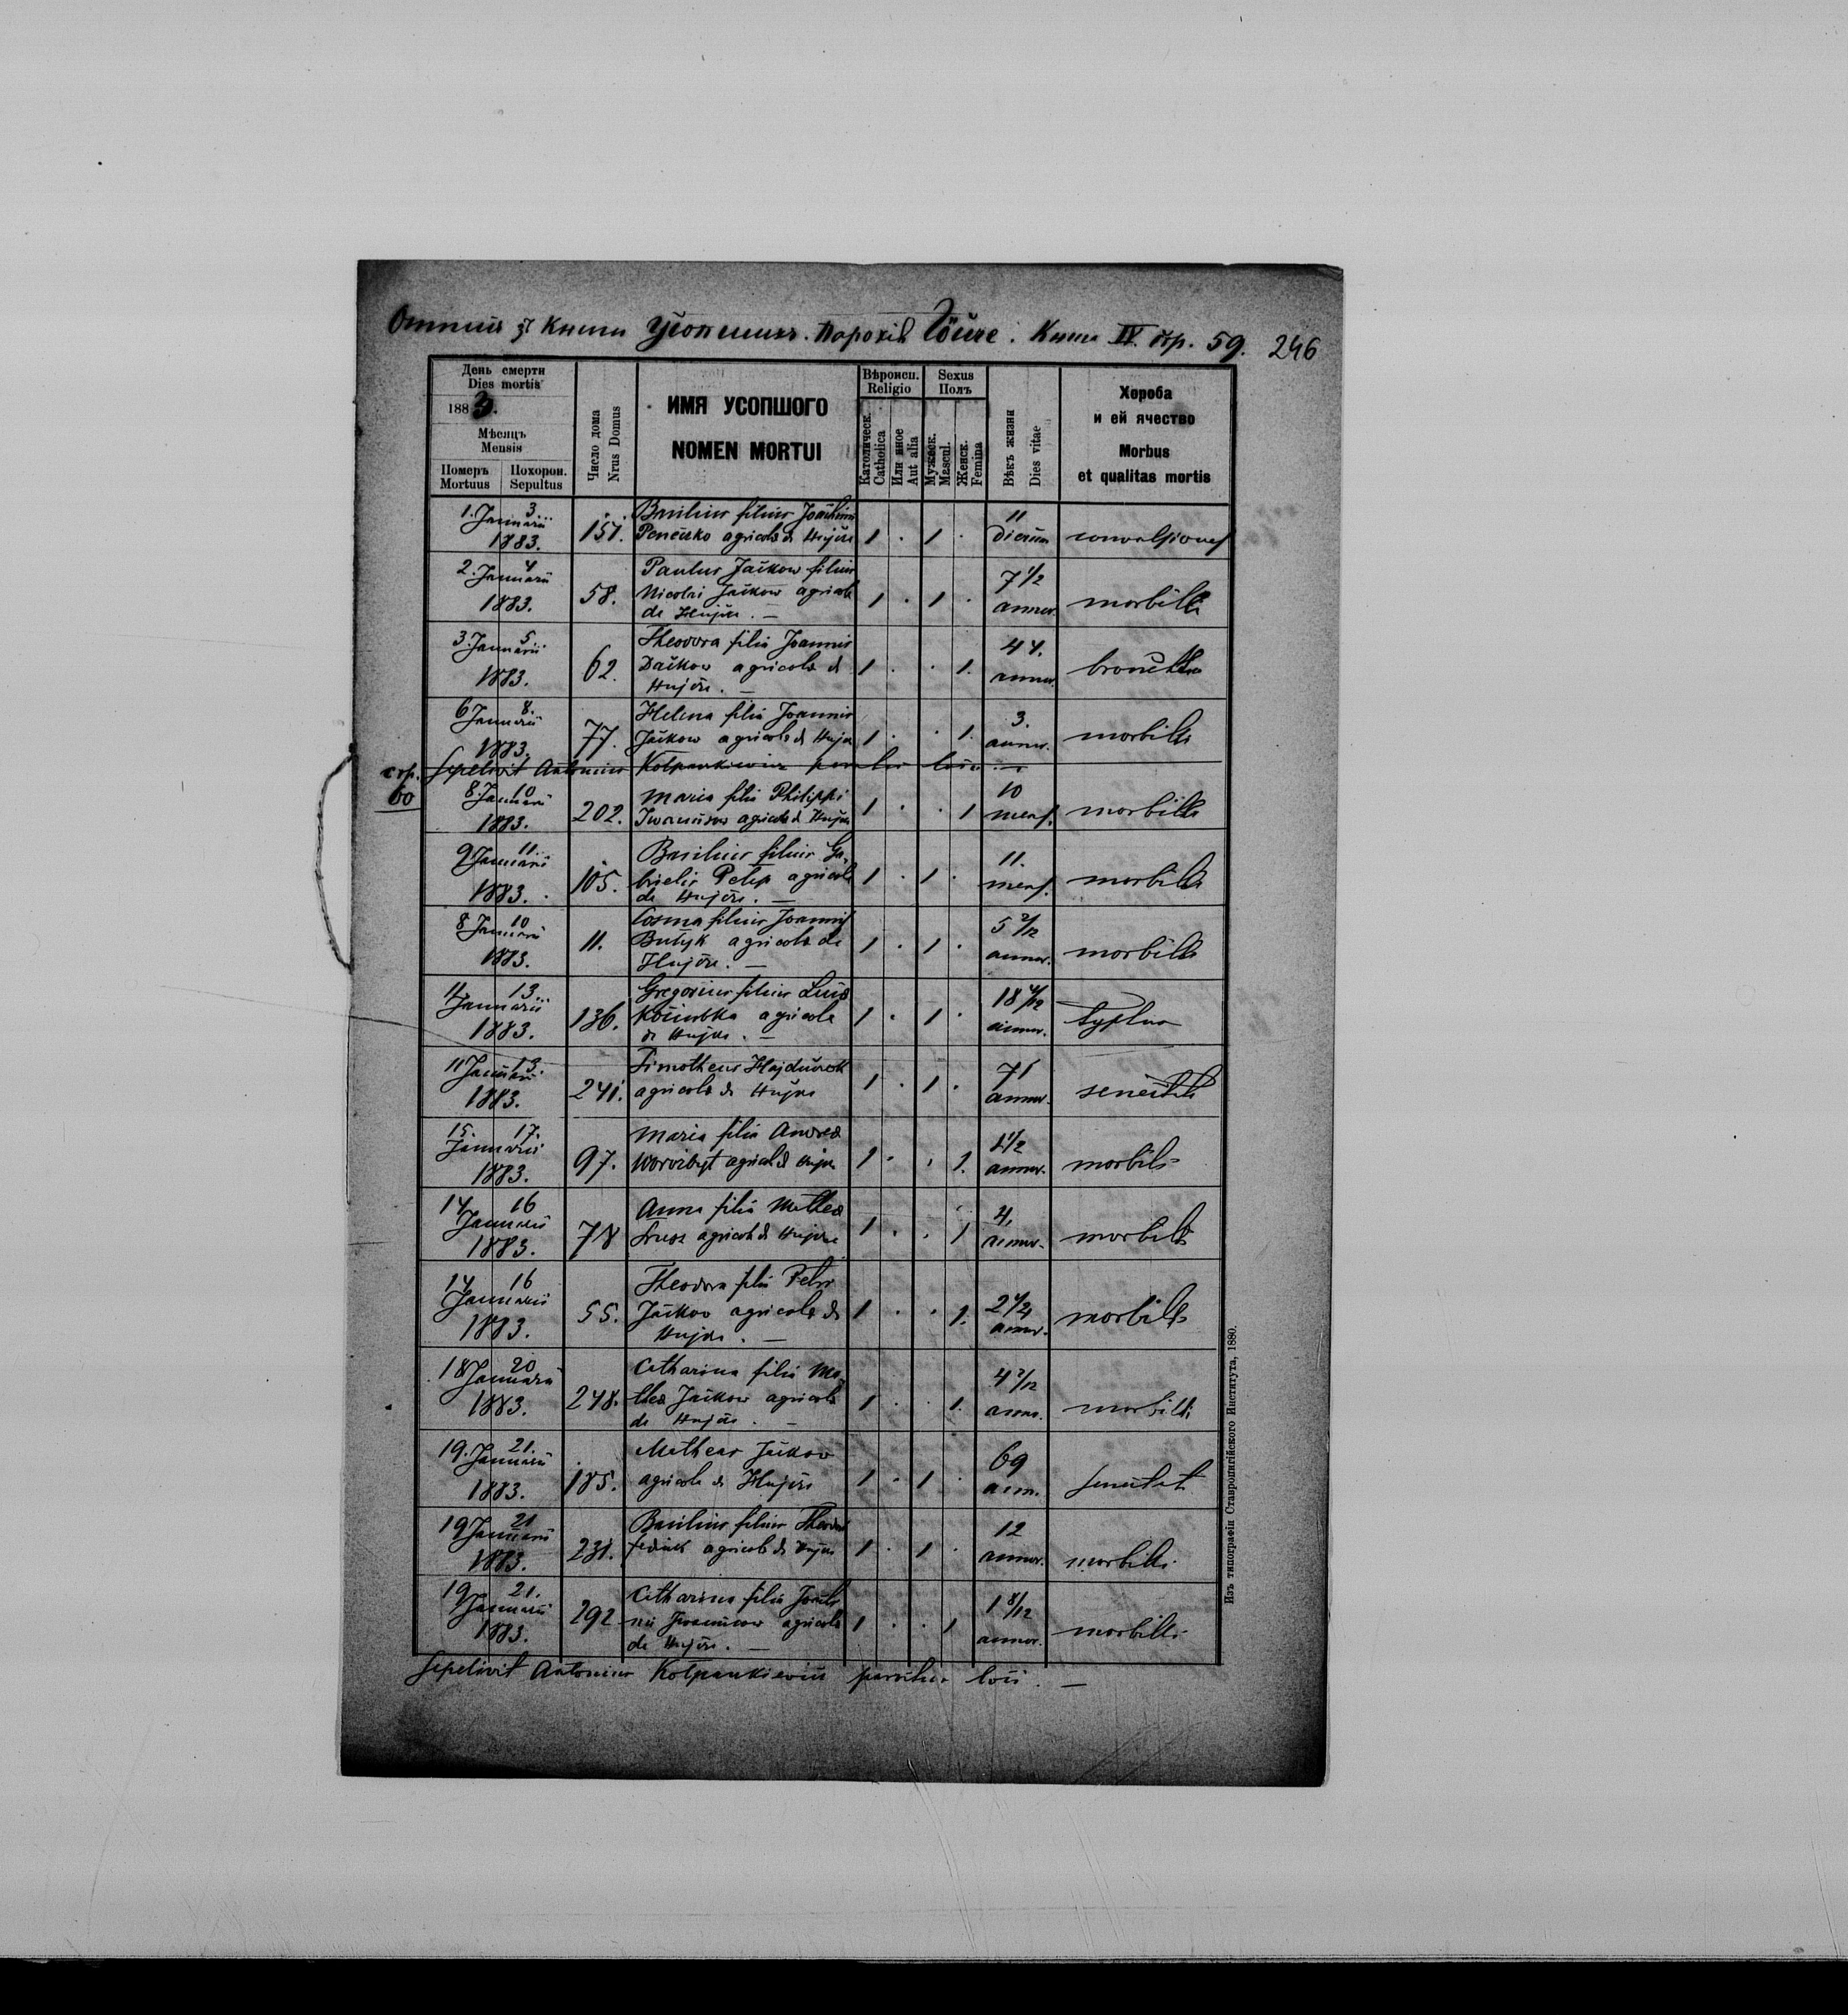 Книги Усопшихъ. Парохіѣ Гойче. Книга IV. стр. 59. 246
День смерти
Dies mortis
1883.
Мѣсяцъ
Mensis
Померъ
Mortuus
Похорон.
Sepultus
Число дома
Nrus Domus
ИМЯ УСОПШОГО
NOMEN MORTUI
Вѣроисп.
Religio
Католическ.
Catholica
Или иное
Aut alia
Sexus
Полъ
Мужеск.
Mascul.
Женск.
Femina
Вѣкъ жизни
Dies vitae
Хороба
и ей ячество
Morbus
et qualitas mortis
1. 3. Januarii 1883. 151. Basilius filius Joachimi
agricola de Hujcze 1 . 1 . 11 dierum convulsiones
2. 4 Januarii 1883. 58. Paulus Jaćkow filius
Nicolai Jaćkow agricola
de Hujcze. — 1 . 1 . 7 1/2 annor. morbilli
3. 5. Januarii 1883. 62. Theodora filia Joannis
Daćkow agricola de
Hujcze. — 1 . . 1. annor.
6 8. Januarii 1883. 77. Helena filia Joannis
Jaćkow agricola de Hujcze 1 . . 1. 3. annor. morbilli
Sepelivit Antonius Kolpankiewicz parochus loci —
стр.
60
8. 10 Januarii 1883. 202. Maria filia Philippi
agricola de Hujcze 1 . . 1 10 mens. morbilli
9 11. Januarii 1883. 105. Basilius filius Ga-
brielis agricola
de Hujcze. — 1 . 1 . 11. mens. morbilli
8 10 Januarii 1883. 11. Cosma filius Joannis
Butyk agricola de
Hujcze. — 1 . 1 . 5 2/12 annor. morbilli
11 13. Januarii 1883. 136. Gregorius filius Lucae
agricola
de Hujcze. — 1 . 1 . annor. typhus
11 13. Januarii 1883. 241. Timotheus Hajduczok
agricola de Hujcze 1 . 1 . 71 annor.
15. 17. Januarii 1883. 97. Maria filia Andreae
Worobyt agricola de Hujcze 1 . . 1. annor. morbilli
14 16 Januarii 1883. 78 Anna filia Matthaei
agricola de Hujcze 1 . . 1 4. annor. morbilli
14 16 Januarii 1883. 55. Theodora filia Petri
Jaćkow agricola de
Hujcze. — 1 . . 1. annor. morbilli
18 20 Januarii 1883. 248. Catharina filia Ma-
thei Jaćkow agricola
de Hujcze. — 1 . . 1. annor. morbilli
19. 21. Januarii 1883. 185. Matheus Jaćkow
agricola de Hujcze 1 . 1 . 69 ann.
19 21 Januarii 1883. 231. Basilius filius Theodori
agricola de Hujcze 1 . 1 . 12 annor. morbilli.
19 21. Januarii 1883. 292 Catharina filia
agricola
de Hujcze. — 1 . . 1 1 8/12 annor. morbilli.
Sepelivit Antonius Kolpankiewicz parochus loci. —
Изъ типографіи Ставропигійского Института, 1880.